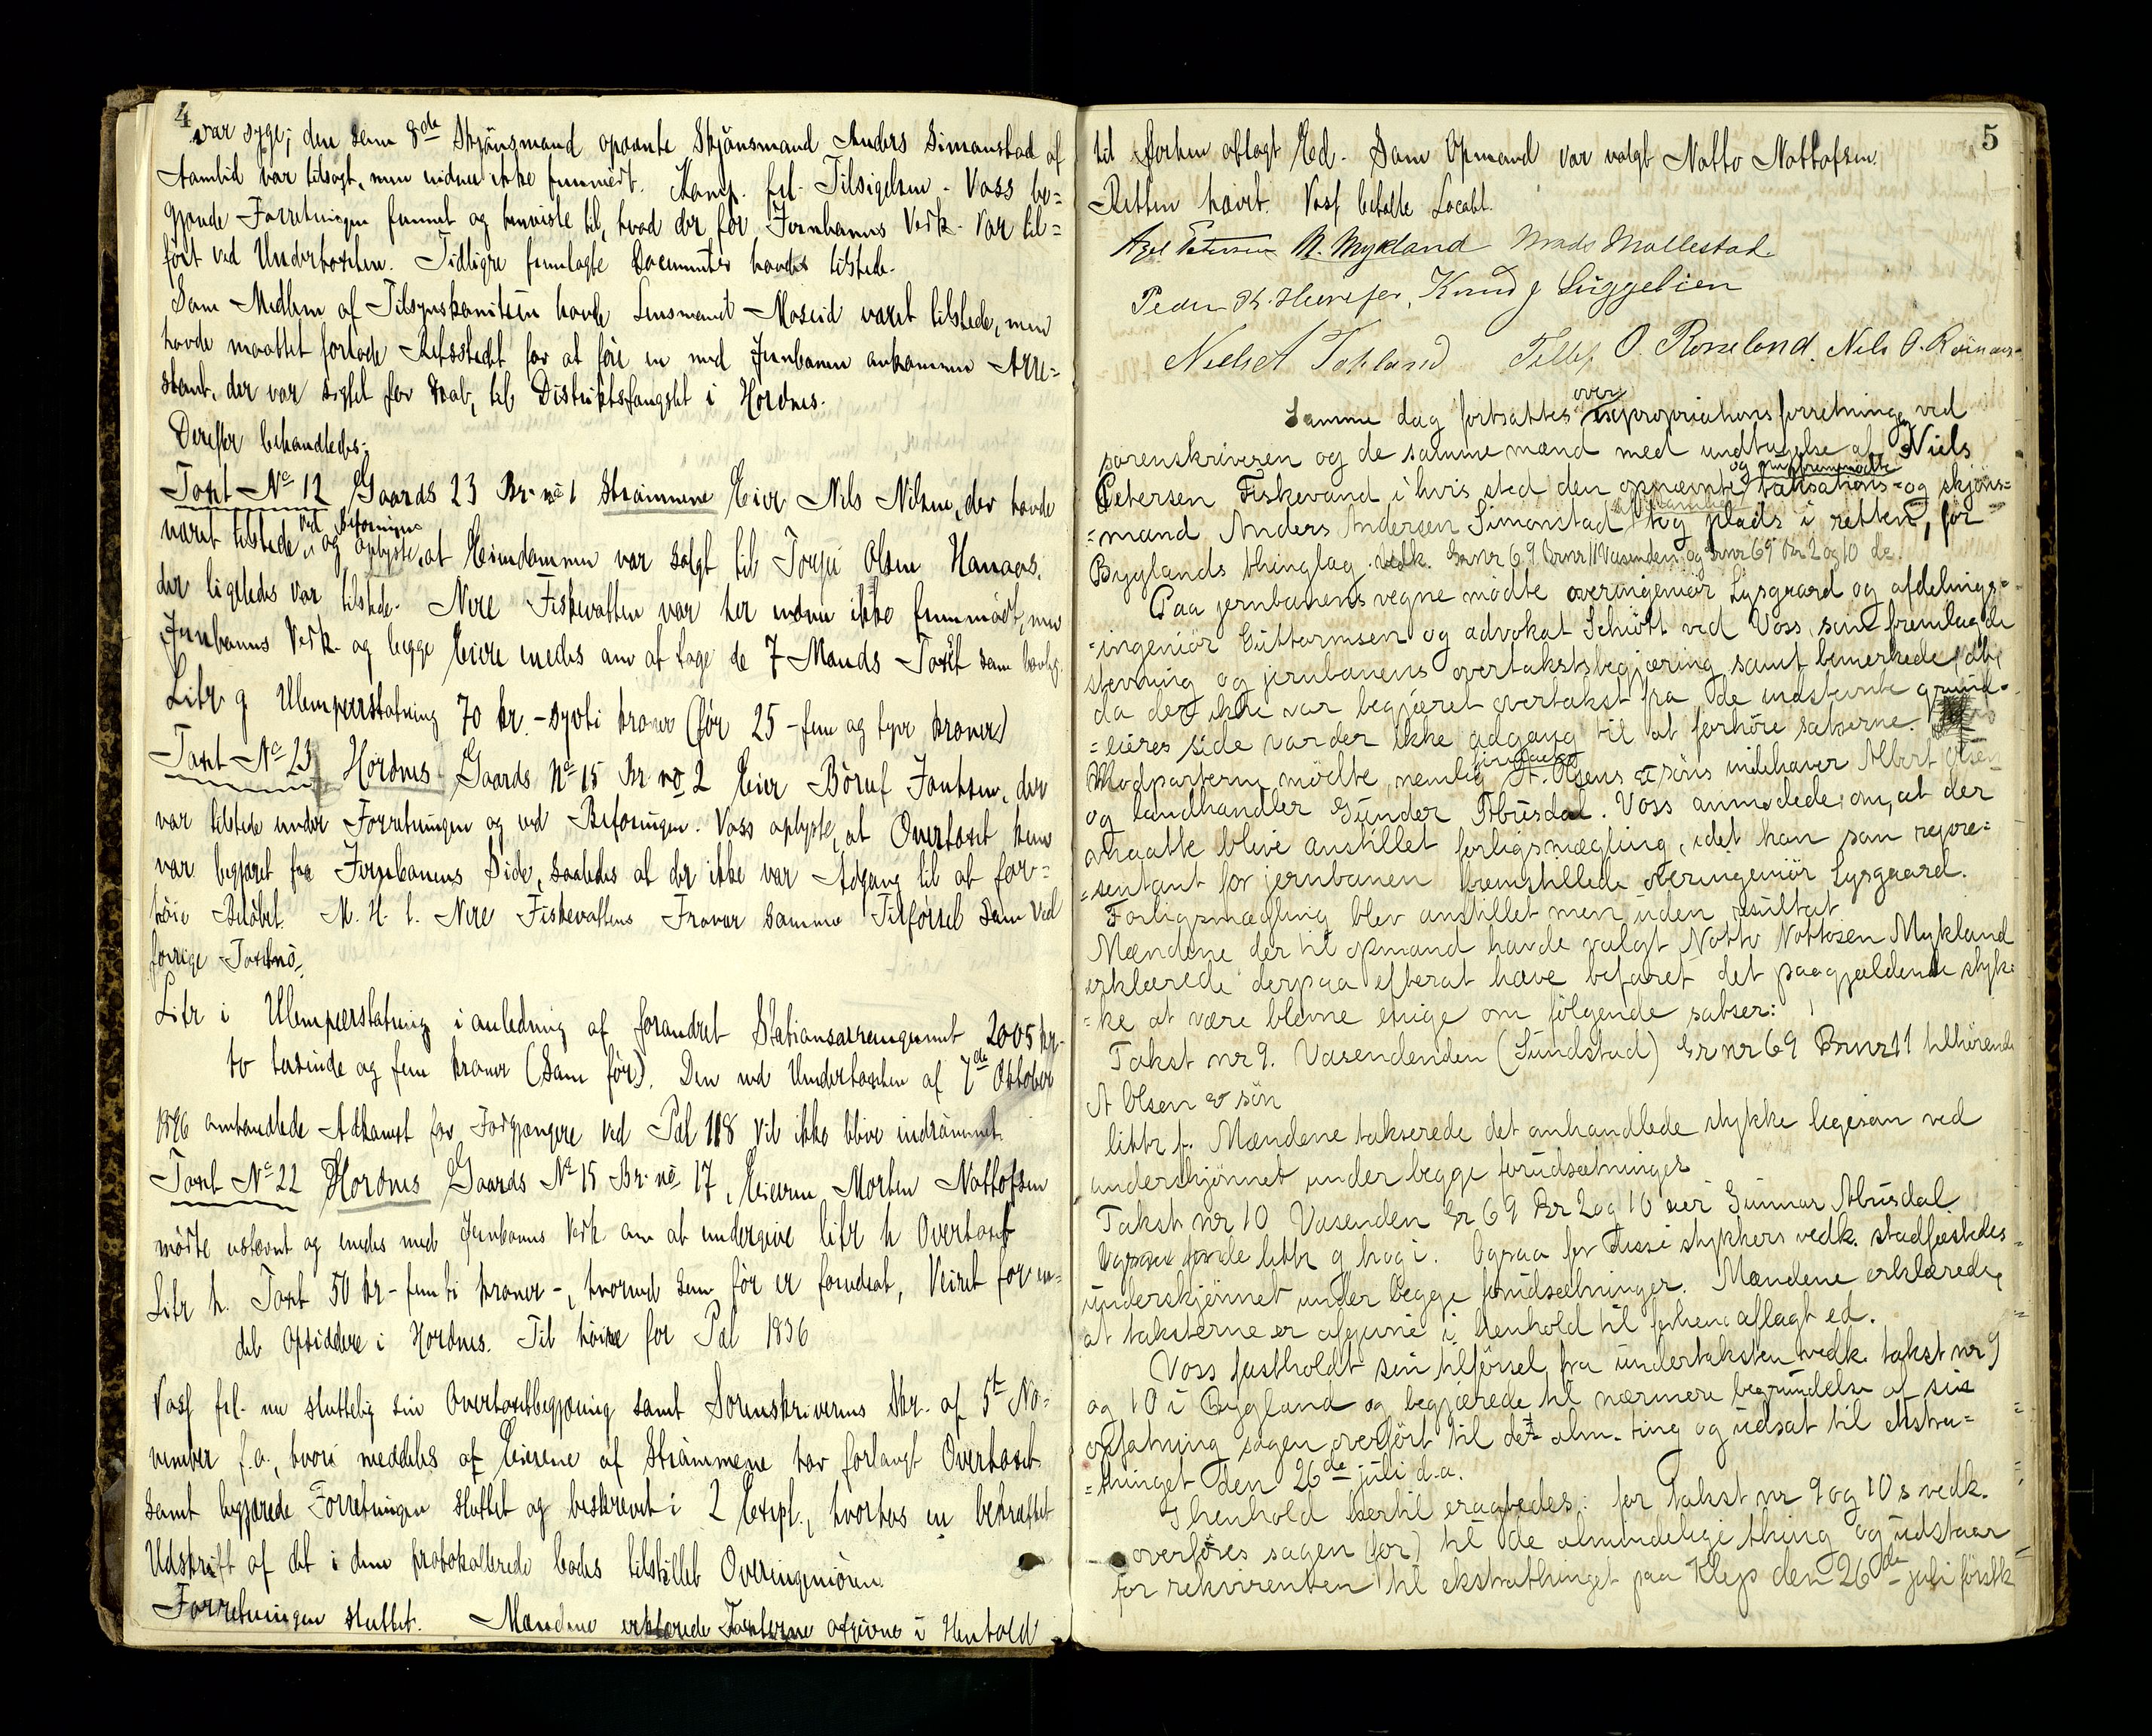 4
var syge; den som 8de Skjönsmand opnævnte Skjönsmand Anders Simonstad af
Aamlid var tilsagt, men endnu ikke fremmødt. Komp. frl. Tilsigelsen. Voss be=
gjærede Forretningen fremmet og henviste til, hvad der for Jernbanens Vedk. var til=
ført ved Undertaxten. Tidligere fremlagte Documenter havdes tilstede.
Som Medlem af Tilsynskomiteen havde Lensmand Moseid været tilstede, men
havde maattet forlade Retsstedet for at føre en med Jernbanen ankommen Arre=
stant, der var sigtet for Drab, til Distriktsfængslet i Hordnes.
Derefter behandledes:
Taxt No 12 Gaards 23 Br. no 1 Strømmene Eier Nils Nilsen, der havde
været tilstede ved Befaringen og oplyste, at Eiendommen var solgt til Torju Olsen Hanaas,
der ligeledes var tilstede. Nere Fiskevatten var her endnu ikke fremmødt, men
Jernbanens Vedk. og begge Eiere enedes om at tage de 7 Mands Taxt som lovlig.
Litr g Ulempeerstatning 70 kr. - sytti kroner (før 25 - fem og tyve kroner)
Taxt No 13 Hordnes Gaards No 15 Br no 2 Eier Böruf Jontsen, der
var tilstede under Forretningen og ved Befaringen. Voss oplyste, at Overtaxt kun
var begjæret fra Jernbanens Side, saaledes at der ikke var Adgang til at for=
høie Beløbet. M. H. t. Nere Fiskevattens Fravær samme Tilførsel som ved
forrige Taxtno.
Litr i Ulempeerstatning i anledning af forandret Stationsarrangement 2005 kr
to tusinde og fem kroner (som før). Den ved Undertaxten af 7de Oktober
1896 omhandlede Adkomst for Fodgjængere ved Pæl 118 vil ikke blive indrømmet.
Taxt No 22 Hordnes Gaards No 15 Br. no 17, Eieren Morten Nottofsen
mødte ustævnt og enedes med Jernbanens Vedk om at undergive litr h Overtaxt
Litr h. Taxt 50 kr - femti kroner -, hvorved som før er forudsat, Veiret for en=
del Opsiddere i Hordnes. Til høire for Pæl 1836
Voss frl. nu sluttelig sin Overtaxtbegjæring samt Sorenskriverens Skr. af 5te No=
vember f.a., hvori meddeles af Eierene af Strømmene har forlangt Overtaxt
samt begjærede Forretningen sluttet og beskrevet i 2 Expl., hvorhos en bekræftet
Udskrift af det i dem protokollerede bades tilstillet Overingeniøren.
Forretningen sluttet. Mændene erklærede Taxterne afgivne i Henhold
5
til forhen aflagt Ed. Som Opmand var valgt Notto Nottofsen.
Retten hævet. Voss betalte Localt.
Axel Petersen N. Mykland Mads Mollestad
Peder K. Knud J Liggelien
Nielset Topland Tellef O. Roseland. Nils O.
Samme dag fortsattes over expropriationsforretninge ved
sorenskriveren og de samme mænd med undtagelse af Niels
Petersen Fiskevand i hvis sted den opnævnte og fremmødte taksations- og skjøns=
=mand Anders Andersen Simonstad tog plads i retten, for
Bygglands thinglag vedk. Grnr 69 Brnr 11 Vasenden og Grnr 69 Br 2 og 10 de.
Paa jernbanens vegne mødte overingeniør Lysgaard og afdelings=
=ingeniør Guttormsen og advokat Schiøtt ved Voss, som fremlagde
stevning og jernbanens overtakstsbegjæring samt bemerkede at,
da der ikke var begjæret overtakst fra de indstevnte grund-
=eieres side var der ikke adgang til at forhöie satserne.
Modparterne mødte, nemlig firmaet A. Olsens & søns indehaver Albert Olsen
og landhandler Gunder Abusdal. Voss anmodede om, at der
maatte blive anstillet forligsmægling, idet han som repre=
=sentant for jernbanen fremstillede overingeniør Lysgaard.
Forligsmægling blev anstillet men uden resultat
Mændene der til opmand havde valgt Notto Nottosen Mykland
erklærede derpaa efterat have befaret det paagjældende styk=
=ke at være blevne enige om følgende satser:
Takst nr 9. Vasendenden (Sundstad) Gr nr 69 Brnr 11 tilhørende
A Olsen & søn
littr f. Mændene takserede det omhandlede stykke ligesom ved
underskjønnet under begge forudsætninger
Takst nr 10 Vasenden Gr 69 Br 2 og 10 eier Gunnar Abusdal
littr g h og i. Ogsaa for disse stykkers vedk. stadfæstedes
underskjønnet under begge forudsætninger. Mændene erklærede,
at taksterne er afgivne i henhold til forhen aflagt ed.
Voss fastholdt sin tilførsel fra undertaksten vedk. takst nr 9
og 10 i Bygland og begjærede til nærmere begrundelse af sin
opfatning sagen overført til det alm. ting og udsat til ekstra=
=thinget den 26de juli d.a.
I henhold hertil eragtedes: for takst nr 9 og 10 s vedk.
overføres sagen (for) til de almindelige thing og udstaar
for rekvirenten til ekstrathinget paa Klep den 26de juli førstk